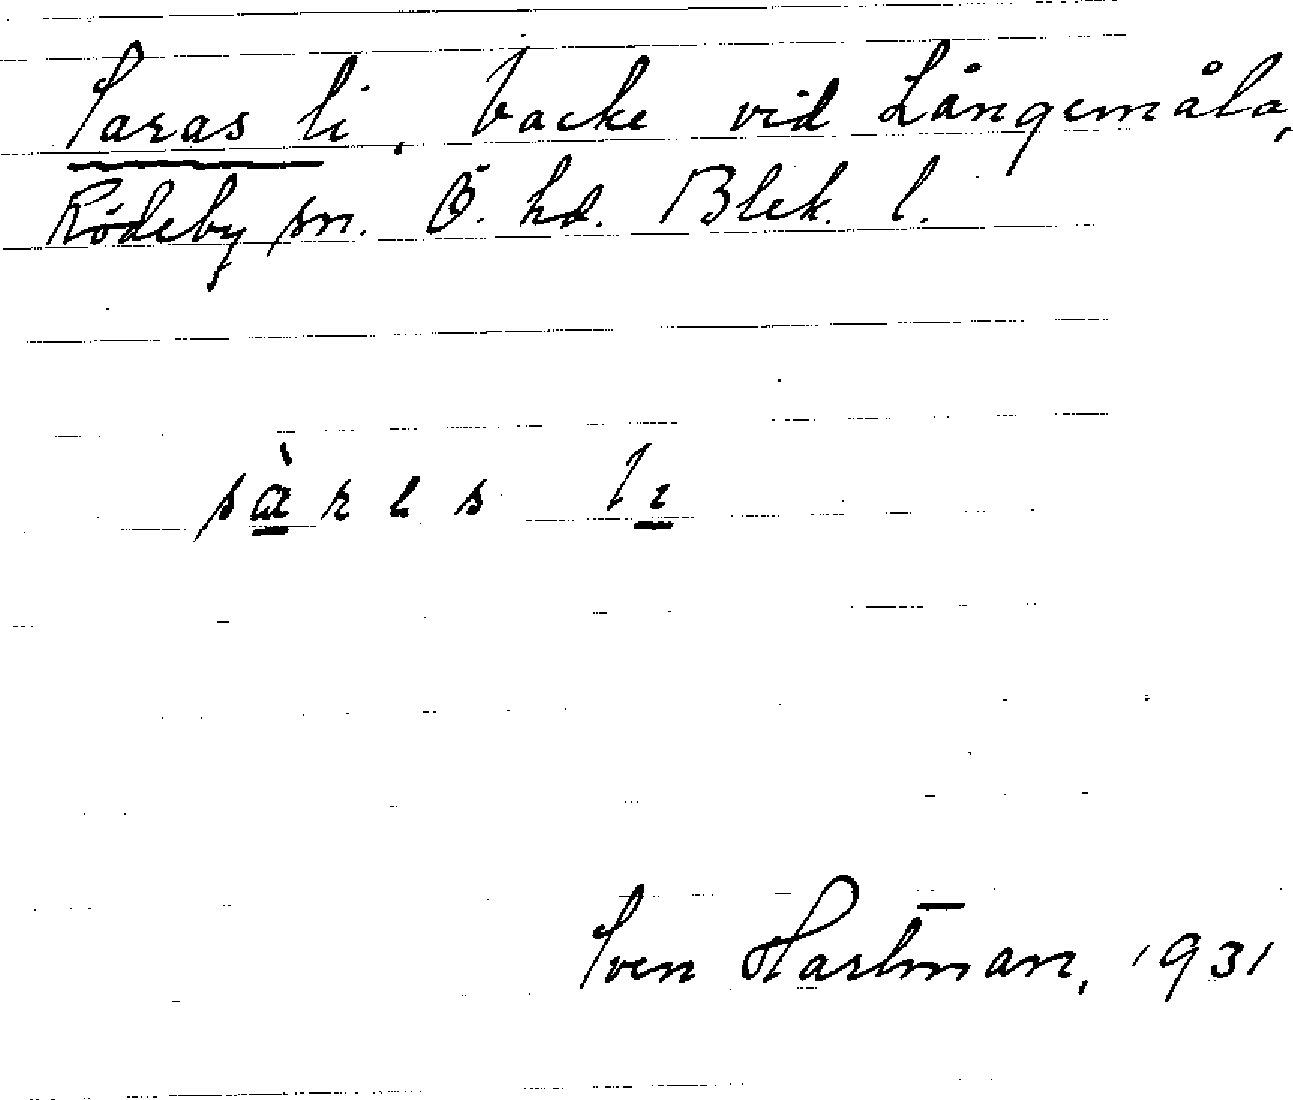 Saras li, backe vid Långemåla,
Rödeby sn. Ö. hd. Blek. l.
sàrɩs lɩ
Sven Hartman, 1931